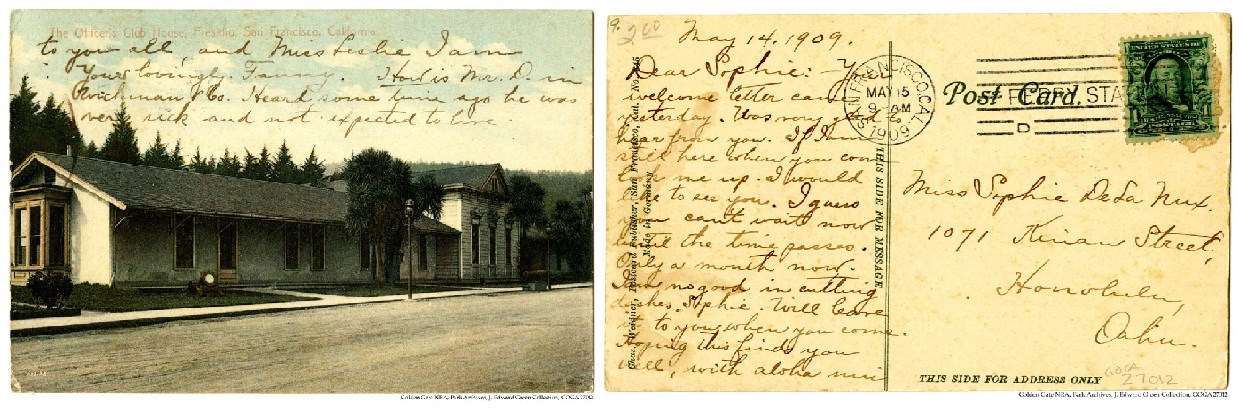 The Officer's Club House, Presidio, San Francisco, California.
to you all, and Miss Leslie I am
Yours lovingly. Fanny. How is Mr. D. in
& Co. Heard some time ago he was
very sick and not expected to live.
Golden Gate NRA, Park Archives, J. Edward Green Collection, GOGA 27012
9.
200
May 14. 1909.
Dear Sophie:
welcome letter came
yesterday. Was very glad to
hear from you. If I am
still here when you come
me up. I would
to see you. I guess
you can't wait now
until the time passes.
Only a month now.
I am no good in cutting
dishes. Sophie. Will leave
to you when you come.
Hoping this finds you
well, with aloha nui
Chas. Weidner, Postcard Publisher, San Francisco, Cal. No.
Made in Germany
THIS SIDE FOR MESSAGE
SAN FRANCISCO, CAL.
MAY 15
9 AM
1909
FERRY STA
D
Post Card.
Miss Sophie DeLa Nux.
1071 Kinau Street,
Honolulu,
Oahu.
THIS SIDE FOR ADDRESS ONLY
GOGA
27012
Golden Gate NRA, Park Archives, J. Edward Green Collection, GOGA 27012